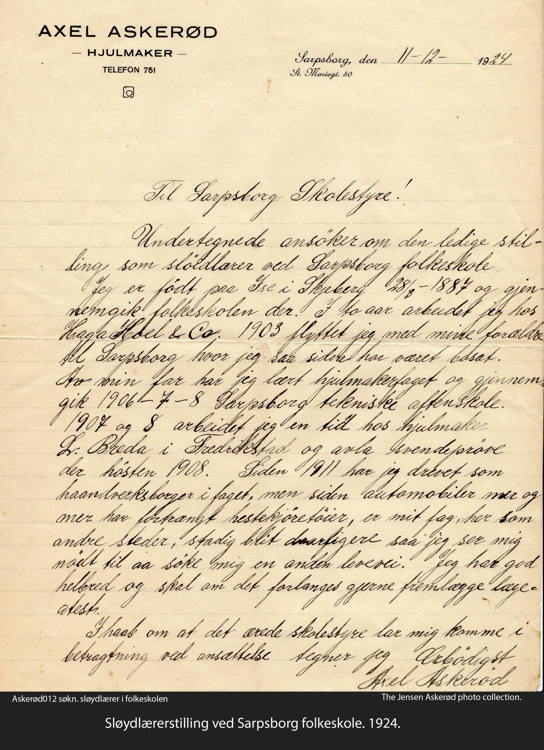 AXEL ASKERØD
— HJULMAKER —
TELEFON 751
Sarpsborg, den 11-12- 1924
St. Mariegt. 50
Til Sarpsborg Skolestyre!
Undertegnede ansöker om den ledige stil-
ling som slöidlærer ved Sarpsborg folkeskole
Jeg er födt paa Ise i Skjeberg 28/8-1887 og gjen-
nemgik folkeskolen der. I to aar arbeidet jeg hos
Haga & Co. 1903 flyttet jeg med mine forældre
til Sarpsborg hvor jeg saa siden har været bosat.
Av min far har jeg lært hjulmakerfaget og gjennem-
gik 1906-7-8 Sarpsborg tekniske aftenskole.
1907 og 8 arbeidet jeg en tid hos hjulmaker
L. Breda i Fredrikstad og avla svendepröve
der hösten 1908. Siden 1911 har jeg drevet som
haandverksborger i faget, men siden automobiler mer og
mer har fortrængt hestekjöretöier, er mit fag, her som
andre steder, stadig blit daarligere saa jeg ser mig
nödt til aa söke mig en anden levevei. Jeg har god
helbred og skal om det forlanges gjerne fremlægge læge-
atest.
I haab om at det ærede skolestyre tar mig komme i
betragtning ved ansættelse tegner jeg Ærbödigst
Axel Askeröd
Askerød012 søkn. sløydlærer i folkeskolen
The Jensen Askerød photo collection.
Sløydlærerstilling ved Sarpsborg folkeskole. 1924.